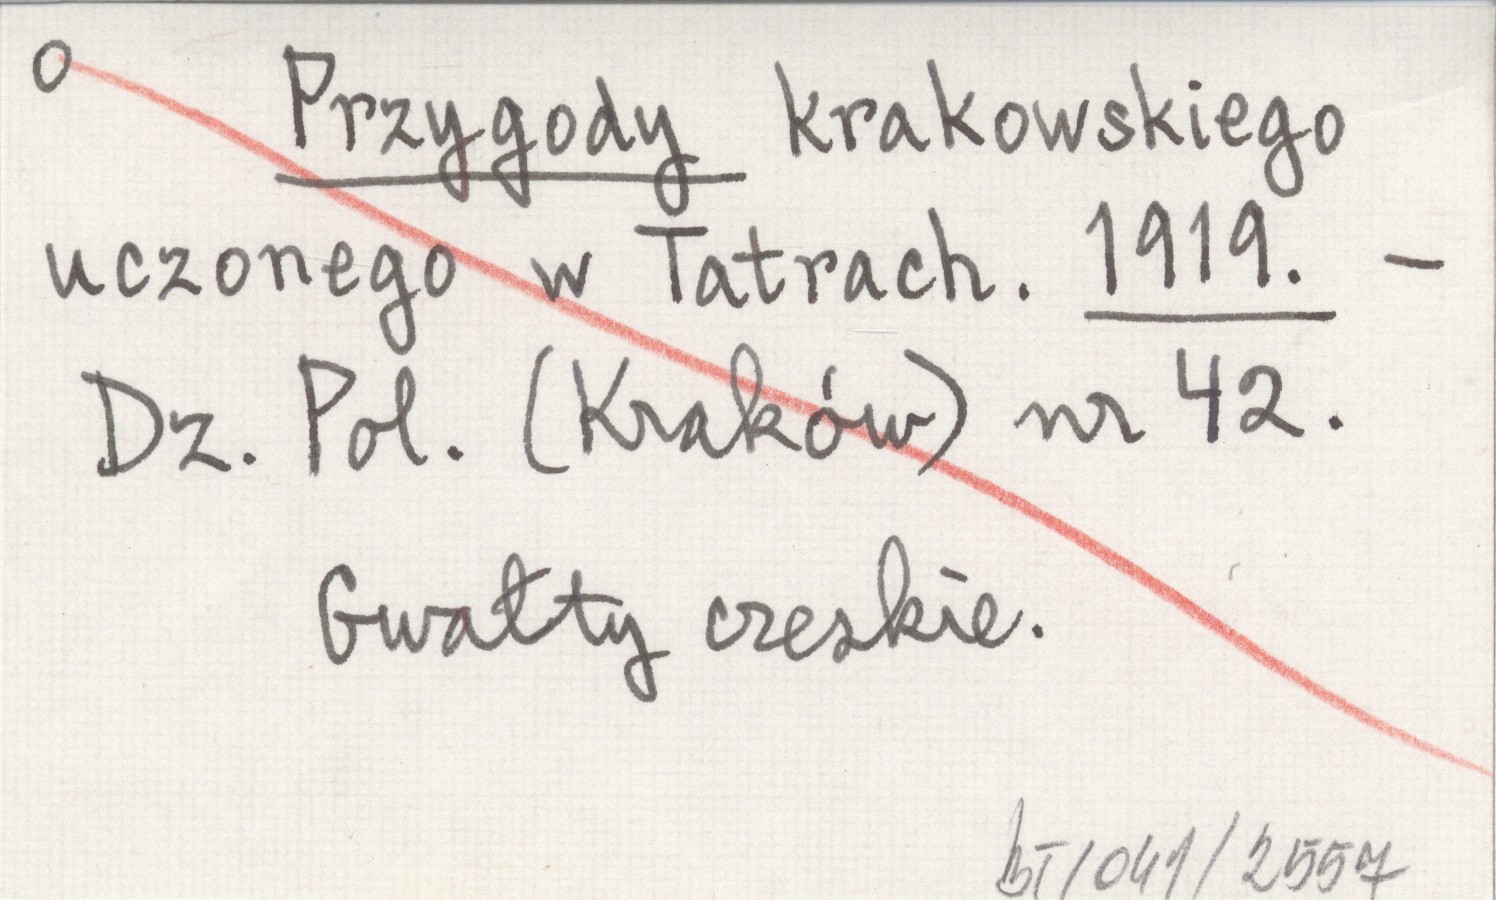 O Przygody krakowskiego
uczonego w Tatrach. 1919. –
Dz. Pol. (Kraków) nr 42.
Gwałty czeskie.
bT/041/2557